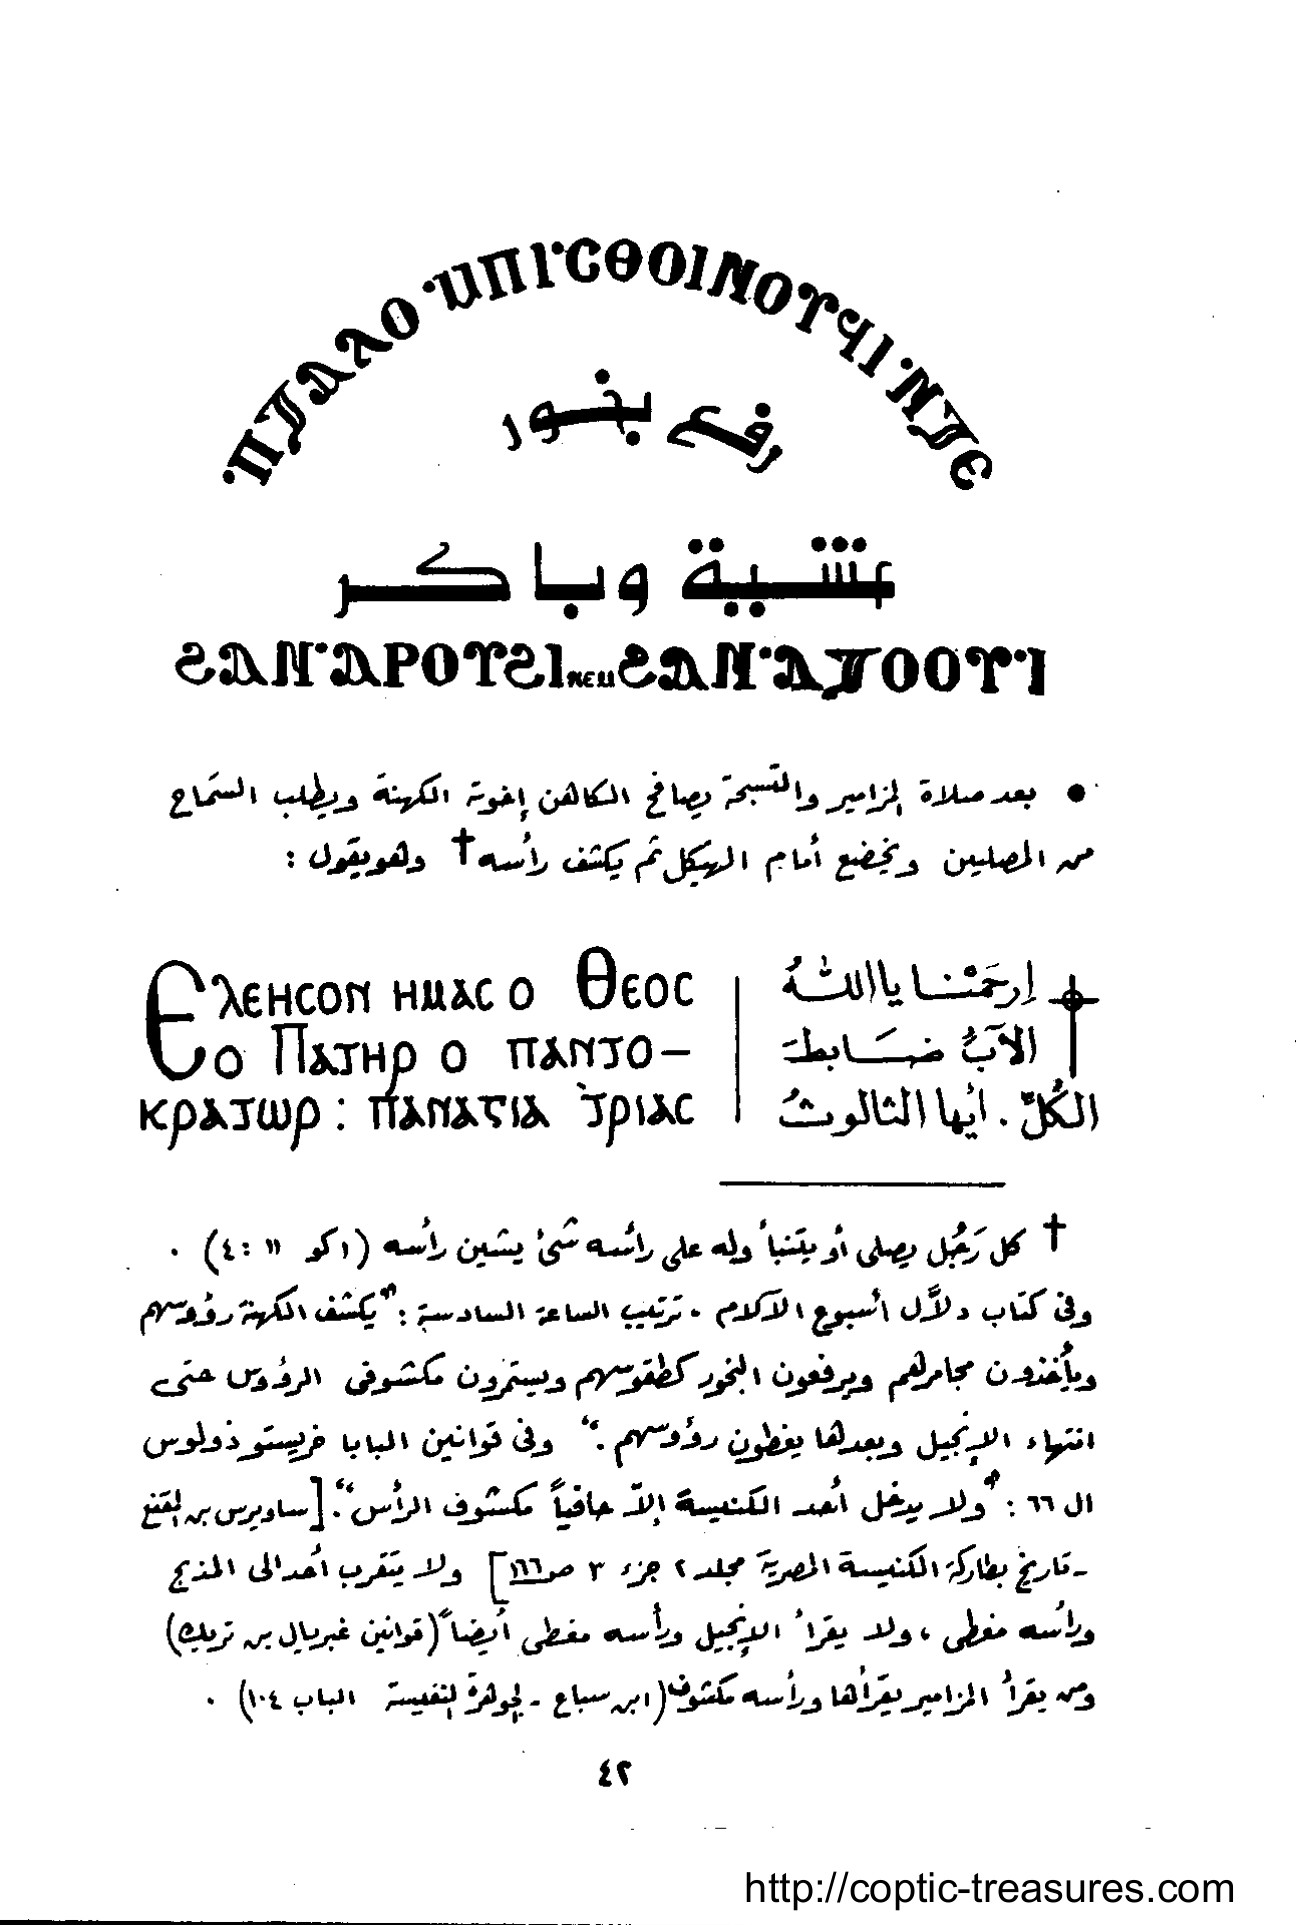 ⲡ̀ϫⲁⲗⲟ ⲙ̀ⲡⲓⲥ̀ⲑⲟⲓⲛⲟⲩϥⲓ ⲛ̀ϫⲉ
رفع بخور
عشية وباكر
ϩⲁⲛⲁ̀ⲣⲟⲩϩⲓ ⲛⲉⲙ ϩⲁⲛⲁ̀ⲧⲟⲟⲩⲓ̀
● بعد صلاة المزامير والتسبحة يصافح الكاهن إخوته الكهنة ويطلب السَماح
من المصليين ويخضع أمام الهيكل ثم يكشف رأسه † وهو يقول :
Ⲉⲗⲉⲏⲥⲟⲛ ⲏⲙⲁⲥ ⲟ Ⲑⲉⲟⲥ
ⲟ Ⲡⲁⲧⲏⲣ ⲟ ⲡⲁⲛⲧⲟ–
ⲕⲣⲁⲧⲱⲣ : ⲡⲁⲛⲁⲅⲓⲁ ⲧ̀ⲣⲓⲁⲥ
إرحَمْنا يا اللهُ
الآبُ ضَابط
الكُلّ . أيها الثالوثُ
† كل رَجُل يصلى أو يتنبأ وله على رأسه شئ يشين رأسه (١كو ١١ :٤) .
وفى كتاب دلاَّل أسبوع الآلام . ترتيب الساعة السادسة : "يكشف الكهنة رؤوسهم
ويأخذون مجامرهم ويرفعون البخور كطقوسهم ويستمرون مكشوفى الرؤوس حتى
انتهاء الإنجيل وبعدها يغطون رؤوسهم ." وفى قوانين البابا خريستوذولوس
ال ٦٦ : "ولا يدخل أحد الكنيسة إلاّ حافياً مكشوف الرأس". [ساويرس بن المقفع
- تاريخ بطاركة الكنيسة المصرية مجلد ٢ جزء ٣ صـ١٦٦] ولا يتقرب أحد الى المذبح
ورأسه مغطى ، ولا يقرأ الإنجيل ورأسه مغطى أيضاً (قوانين غبريال بن تريك)
ومن يقرأ المزامير يقرأها ورأسه مكشوف (ابن سباع - الجوهرة النفيسة الباب ١٠٤) .
٤٢
http://coptic-treasures.com